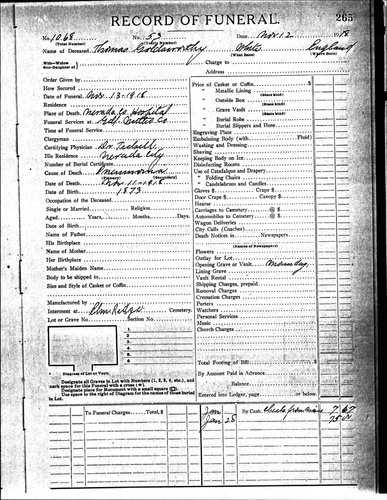 RECORD OF FUNERAL. 265
No. 1068 No. 53 Date Nov. 12 1918
(Total Number) (Yearly Number)
Name of Deceased Thomas Goldsworthy White England
(What Race) (Where Born)
Wife—Widow
Son-Daughter of
Charge to
Address
Order Given by
How Secured
Date of Funeral Nov. 13-1918
Residence
Place of Death Nevada Co. Hospital
Funeral Services at
Time of Funeral Service
Clergyman
Certifying Physician Dr.
His Residence Nevada City
Number of Burial Certificate
Cause of Death Pneumonia
(Primary) (Secondary)
Date of Death Nov 11-1918
Date of Birth 1873
Occupation of the Deceased
Single or Married Religion
Aged Years, Months, Days
Date of Birth
Name of Father
His Birthplace
Name of Mother
Her Birthplace
Mother's Maiden Name
Body to be shipped to
Size and Style of Casket or Coffin
Manufactured by
Interment at Elm Ridge Cemetery
Lot or Grave No. Section No.
1
2
3
4
5
6
Diagram of Lot or Vault
Designate all Graves in Lot with Numbers (1, 2, 3, 4, etc.), and
mark space for this Funeral with a cross (+).
Designate place for Monument with a small square (□).
Use space to the right of Diagram for names of those buried
in Lot.
Price of Casket or Coffin $
" Metallic Lining
(State kind)
" Outside Box
(State kind)
" Grave Vault
(State kind)
" Burial Robe
(State kind)
" Burial Slippers and Hose
Engraving Plate
Embalming Body (with Fluid)
Washing and Dressing
Shaving
Keeping Body on Ice
Disinfecting Rooms
Use of Catafalque and Drapery
" Folding Chairs
" Candelabrum and Candles
Gloves $ Crape $
Door Crape $ Canopy $
Hearse
Carriages to Cemetery @ $
Automobiles to Cemetery @ $
Wagon Deliveries
City Calls (Coaches)
Death Notices in Newspapers
(Names of Newspapers)
Flowers
Outlay for Lot
Opening Grave or Vault
Lining Grave
Vault Rental
Shipping Charges, prepaid
Removal Charges
Cremation Charges
Porters
Watchers
Personal Services
Music
Church Charges
Total Footing of Bill
By Amount Paid in Advance
Balance
Entered into Ledger, page or below.
To Funeral Charges Total, $
Jan By Cash 7 67
Jan 28